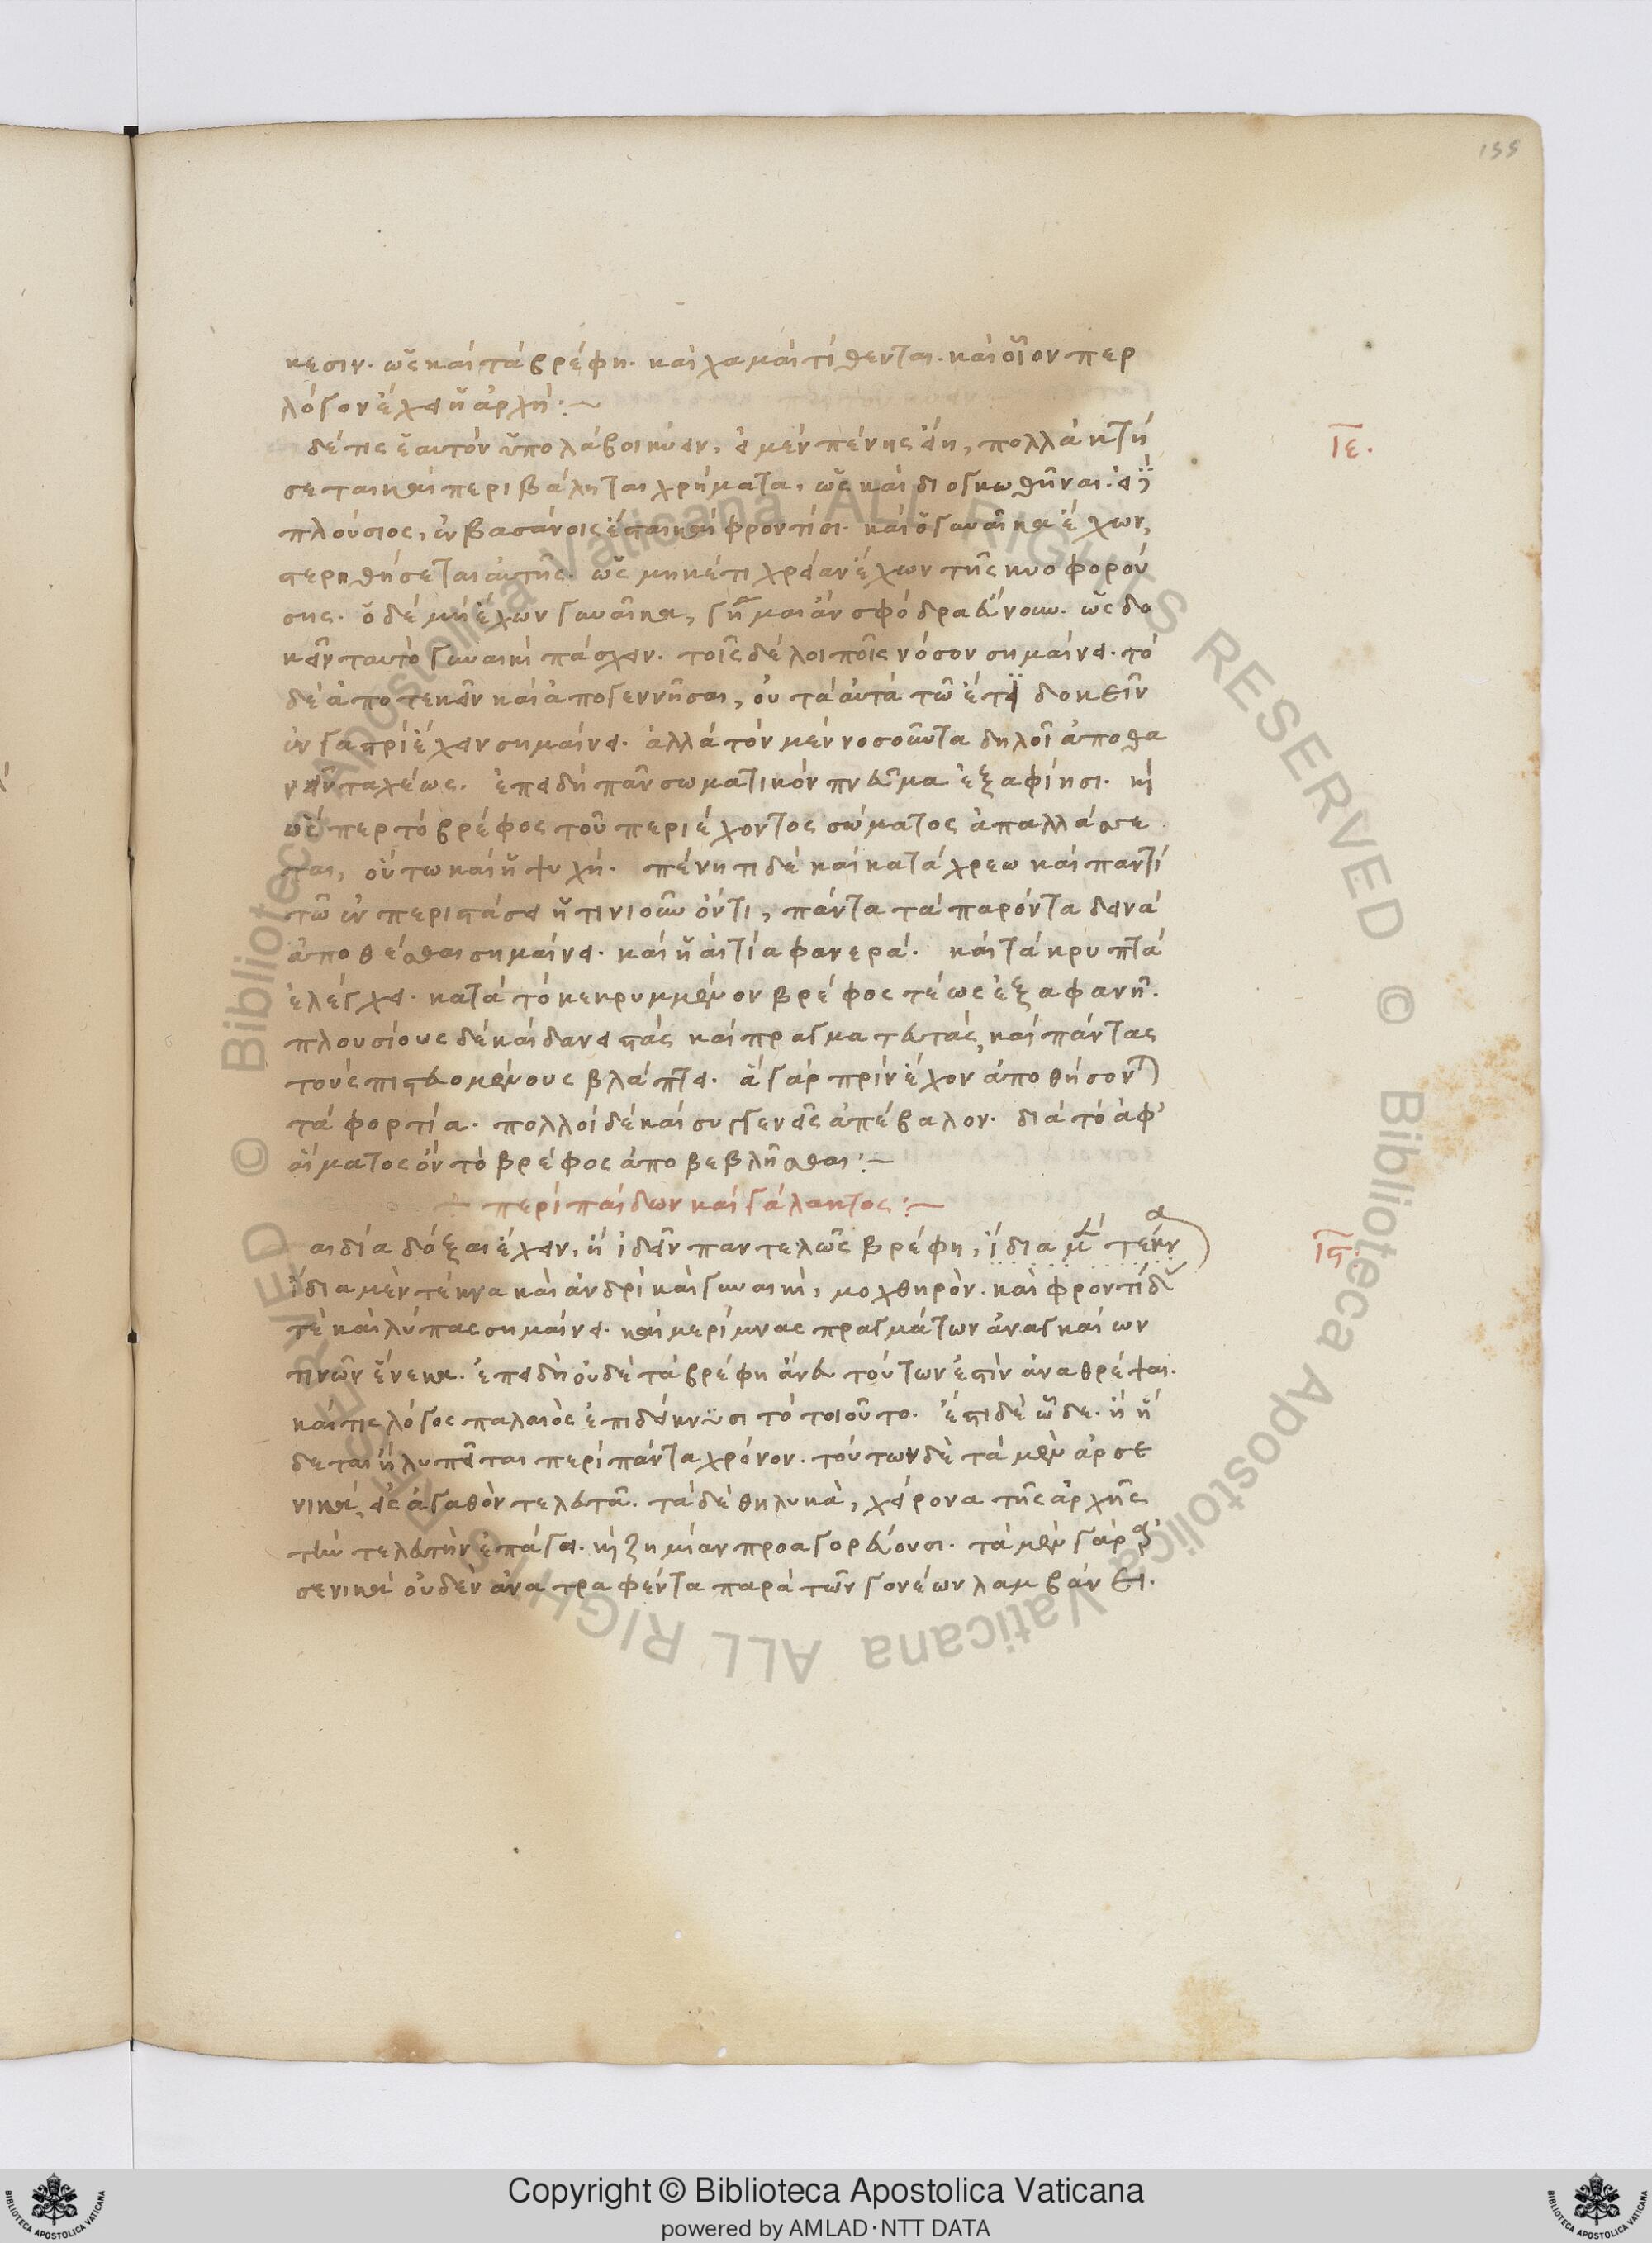 155
κεσιν. ὡς καὶ τὰ βρέφη. καὶ χαμαὶ τίθενται. καὶ οἷον περ
λόγον ἔχει ἡ ἀρχή:~
δέ τις ἑαυτὸν ὑπολάβοι κύειν, εἰ μὲν πένης εἴη, πολλὰ κτή
ιε.
σεται καὶ περιβάληται χρήματα, ὡς καὶ διογκωθῆναι. εἰ δὲ
πλούσιος, ἐν βασάνοις ἔσται καὶ φροντίσι. καὶ ὁ γυναῖκα ἔχων,
στερηθήσεται αὐτῆς. ὡς μηκέτι χρείαν ἔχων τῆς κυοφορού
σης. ὁ δὲ μὴ ἔχων γυναῖκα, γῆμαι ἂν σφόδρα εὔνουν. ὡς δο
κεῖν ταυτὸ γυναικὶ πάσχειν. τοῖς δὲ λοιποῖς νόσον σημαίνει. τὸ
δὲ ἀποτεκεῖν καὶ ἀπογεννῆσαι, οὐ τὰ αὐτὰ τῶ ἔτι δοκεῖν
ἐν γαστρὶ ἔχειν σημαίνει. ἀλλὰ τὸν μὲν νοσοῦντα δηλοῖ ἀποθα
νεῖν ταχέως. ἐπειδὴ πᾶν σωματικὸν πνεῦμα ἐξαφίησι. καὶ
ὥσπερ τὸ βρέφος τοῦ περιέχοντος σώματος ἀπαλλάσσε
ται, οὕτω καὶ ἡ ψυχή. πένητι δὲ καὶ καταχρέω καὶ παντὶ
τῶ ἐν περιστάσει ἥτινι οὖν ὄντι, πάντα τὰ παρόντα δεινὰ
ἀποθέσθαι σημαίνει. καὶ ἡ αἰτία φανερά. καὶ τὰ κρυπτὰ
ἐλέγχει. κατὰ τὸ κεκρυμμένον βρέφος τέως ἐξαφανῆ.
πλουσίους δὲ καὶ δανειστὰς καὶ πραγματευτὰς, καὶ πάντας
τοὺς πιστευομένους βλάπτει. ἃ γὰρ πρὶν ἔχον ἀποθήσονται
τὰ φορτία. πολλοὶ δὲ καὶ συγγενεῖς ἀπέβαλον. διὰ τὸ ἀφ'
αἵματος ὂν τὸ βρέφος ἀποβεβλῆσθαι:~
+ περὶ παίδων καὶ γάλακτος:~
αιδία δόξαι ἔχειν, ἢ ἰδεῖν παντελῶς βρέφη, ἴδια μὲν τέκνα
ιϛ.
ἴδια μὲν τέκνα καὶ ἀνδρὶ καὶ γυναικὶ, μοχθηρὸν. καὶ φροντίδας
τὲ καὶ λύπας σημαίνει. καὶ μερίμνας πραγμάτων ἀναγκαίων
τινῶν ἕνεκα. ἐπειδὴ οὐδὲ τὰ βρέφη ἄνευ τούτων ἐστὶν ἀναθρέψαι.
καί τις λόγος παλαιὸς ἐπιδείκνυσι τὸ τοιοῦτο. ἔστι δὲ ὧδε. ἢ ἥ
δεται ἢ λυπεῖται περὶ πάντα χρόνον. τούτων δὲ τὰ μὲν ἀρσε
νικὰ, εἰς ἀγαθὸν τελευτᾶ. τὰ δὲ θηλυκὰ, χείρονα τῆς ἀρχῆς
τὴν τελευτὴν ἐπάγει. καὶ ζημίαν προαγορεύουσι. τὰ μὲν γὰρ ἀρ
σενικὰ οὐδὲν ἀνατραφέντα παρὰ τῶν γονέων λαμβάνει.
Copyright © Biblioteca Apostolica Vaticana
powered by AMLAD·NTT DATA